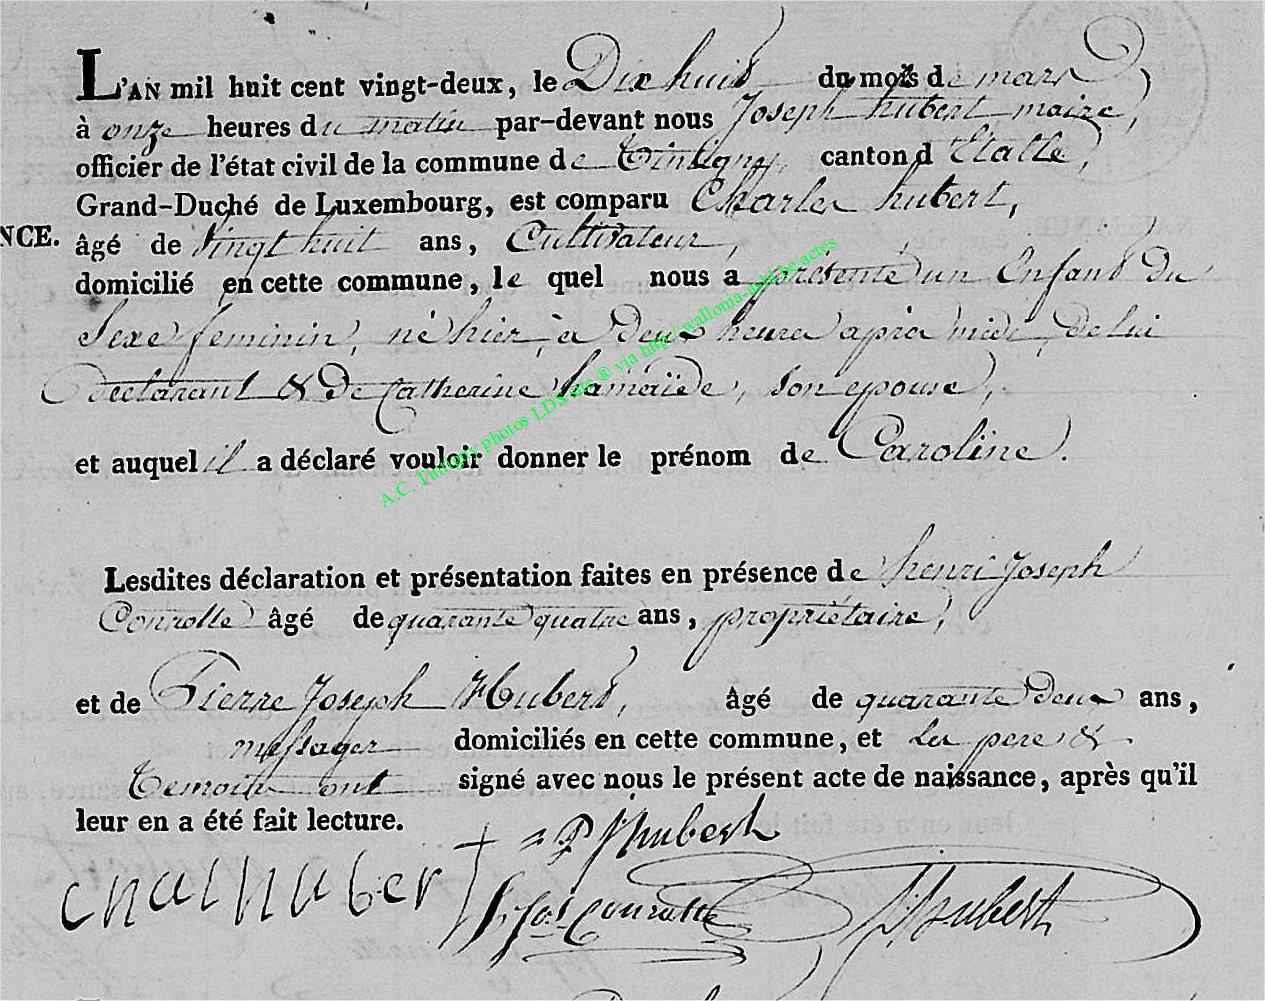 L'AN mil huit cent vingt-deux, le Dix huit du mois de mars
à onze heures du matin par-devant nous Joseph hubert maire,
officier de l'état civil de la commune de Tintigny, canton d Etalle,
Grand-Duché de Luxembourg, est comparu Charles hubert,
NCE.
âgé de vingt huit ans, Cultivateur,
domicilié en cette commune, le quel nous a présenté un Enfant Du
Sexe feminin, né hier, à Deux heures après midi, de lui
Déclarant & De Catherine hamaïde, son epouse,
et auquel il a déclaré vouloir donner le prénom de Caroline.
Lesdites déclaration et présentation faites en présence de henri Joseph
Conrotte âgé de quarante quatre ans, propriétaire,
et de Pierre Joseph Hubert, âgé de quarante Deux ans,
messager domiciliés en cette commune, et Les pere &
Temoins ont signé avec nous le présent acte de naissance, après qu'il
leur en a été fait lecture.
P J hubert
chal huber
h. Jos. Conrotte
J hubert
A.C. Tintigny photos LDS ® via http://wallonia-asbl.be/actes